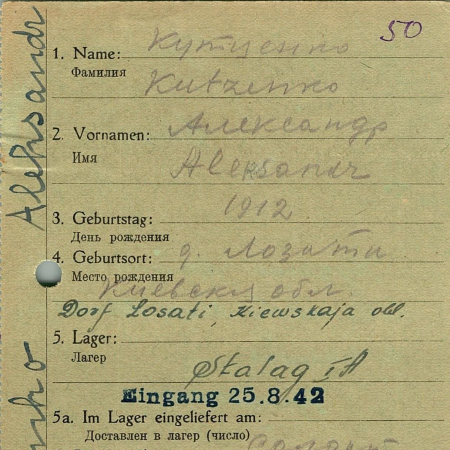 50
Aleksandr
Кутценко
1. Name:
Фамилия
Kutzenko
Александр
2. Vornamen:
Имя
Aleksandr
1912
3. Geburtstag:
День рождения
д. Лозати
4. Geburtsort:
Место рождения
Киевская обл.
Dorf Losati, Kiewskaja obl.
5. Lager:
Лагер
Stalag IA
Eingang 25.8.42
5a. Im Lager eingeliefert am:
Доставлен в лагер (число)